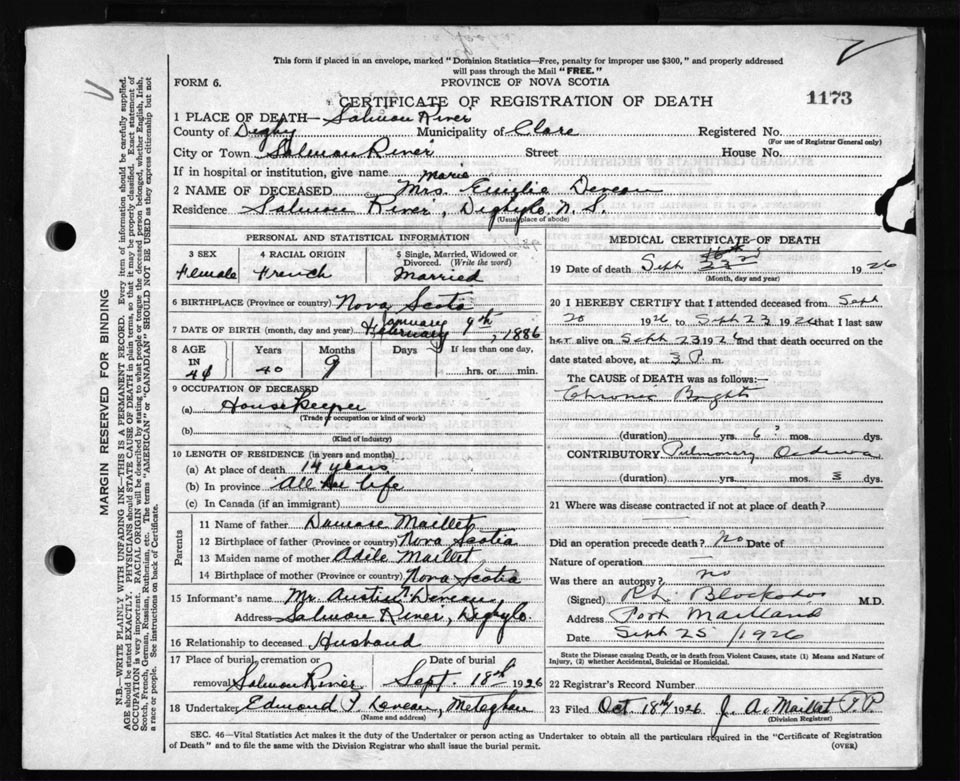 This form if placed in an envelope, marked "Dominion Statistics—Free, penalty for improper use $300," and properly addressed
will pass through the Mail "FREE."
FORM 6.
PROVINCE OF NOVA SCOTIA
CERTIFICATE OF REGISTRATION OF DEATH
1173
1 PLACE OF DEATH— Salmon River
County of Digby Municipality of Clare Registered No.
(For use of Registrar General only)
City or Town Salmon River Street House No.
If in hospital or institution, give name
Marie
2 NAME OF DECEASED Mrs. Emilie Deveau
Residence Salmon River, Digby Co. N. S.
(Usual place of abode)
PERSONAL AND STATISTICAL INFORMATION
3 SEX Female
4 RACIAL ORIGIN French
5 Single, Married, Widowed or Divorced. (Write the word) Married
6 BIRTHPLACE (Province or country) Nova Scotia
January
7 DATE OF BIRTH (month, day and year) February 9th, 1886
8 AGE IN Years Months Days If less than one day,
40 9 hrs. or min.
9 OCCUPATION OF DECEASED
(a) House Keeper
(Trade or occupation or kind of work)
(b)
(Kind of industry)
10 LENGTH OF RESIDENCE (in years and months)
(a) At place of death 14 years
(b) In province All life
(c) In Canada (if an immigrant)
Parents
11 Name of father Damase Maillet
12 Birthplace of father (Province or country) Nova Scotia
13 Maiden name of mother Adile Maillet
14 Birthplace of mother (Province or country) Nova Scotia
15 Informant's name Mr. Austin Deveau
Address Salmon River, Digby Co
16 Relationship to deceased Husband
17 Place of burial, cremation or removal Salmon River Date of burial Sept. 18th 1926
18 Undertaker Edmond P. Deveau, Meteghan
(Name and address)
MEDICAL CERTIFICATE OF DEATH
19 Date of death Sept 23 1926
(Month, day and year)
20 I HEREBY CERTIFY that I attended deceased from Sept
20 1926 to Sept 23 1926 that I last saw
her alive on Sept 23 1926 and that death occurred on the
date stated above, at 3 P. m.
The CAUSE of DEATH was as follows:—
Chronic Brights
(duration) yrs. 6? mos. dys.
CONTRIBUTORY Pulmonary Oedema
(duration) yrs. mos. 3 dys.
21 Where was disease contracted if not at place of death?
Did an operation precede death? No Date of
Nature of operation
Was there an autopsy? no
(Signed) M.D.
Address Port Maitland
Date Sept 25/1926
State the Disease causing Death, or in death from Violent Causes, state (1) Means and Nature of
Injury, (2) whether Accidental, Suicidal or Homicidal.
22 Registrar's Record Number
23 Filed Oct 18th 1926 J. A. Maillet
(Division Registrar)
SEC. 46—Vital Statistics Act makes it the duty of the Undertaker or person acting as Undertaker to obtain all the particulars required in the "Certificate of Registration
of Death" and to file the same with the Division Registrar who shall issue the burial permit.
(OVER)
MARGIN RESERVED FOR BINDING
N.B.—WRITE PLAINLY WITH UNFADING INK—THIS IS A PERMANENT RECORD. Every item of information should be carefully supplied.
AGE should be stated EXACTLY. PHYSICIANS should STATE CAUSE OF DEATH in plain terms, so that it may be properly classified. Exact statement of
OCCUPATION is very important. RACIAL ORIGIN will be described by stating to what people or tongue the deceased person belonged, whether English, Irish,
Scotch, French, German, Russian, Ruthenian, etc. The terms "AMERICAN" or "CANADIAN" SHOULD NOT BE USED as they express citizenship but not
a race or people. See instructions on back of Certificate.